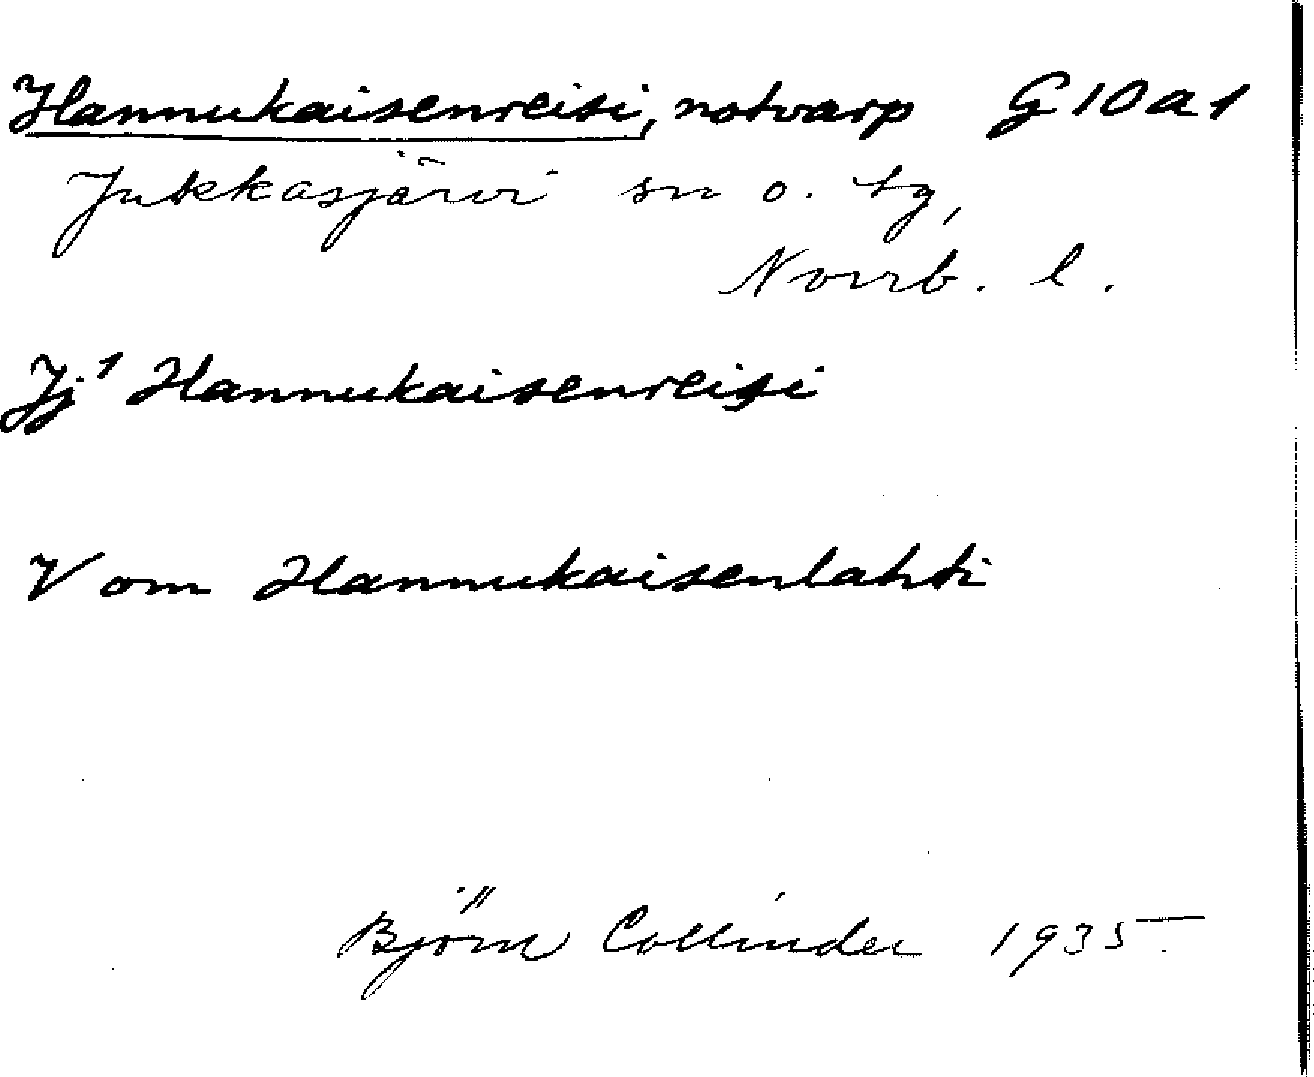 Hannukaisenreisi, notvarp G 10 a 1
Jukkasjärvi sn o. tg,
Norrb. l.
Jj¹ Hannukaisenreisi
V om Hannukaisenlahti
Björn Collinder 1935